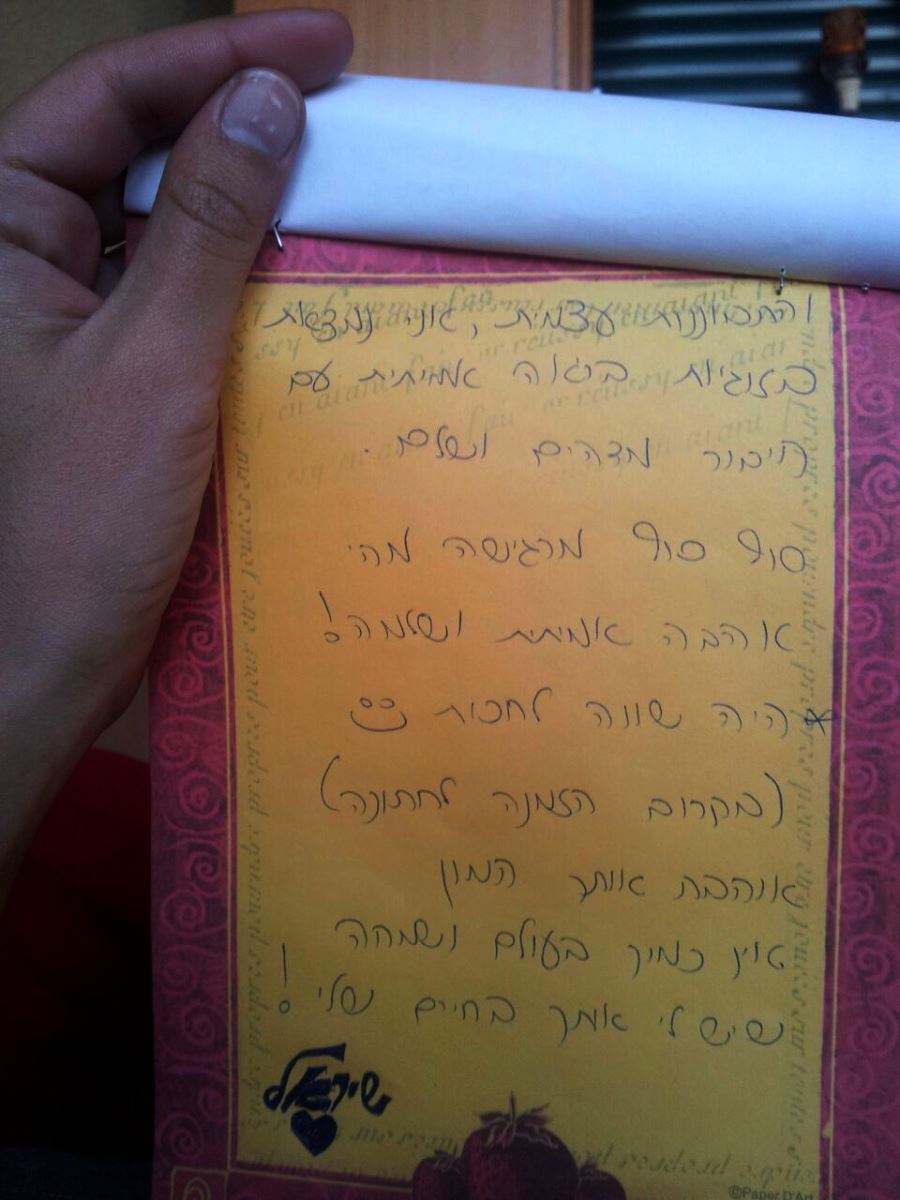 והתכווננות עצמית, אני נמצאת
בזוגיות בוגרת אמיתית עם
חיבור מדהים ושלם.
סוף סוף מרגישה מהי
אהבה אמיתית ושלמה!
*היה שווה לחכות
(בקרוב הזמנה לחתונה)
אוהבת אותך המון
אין כמוך בעולם ושמחה
שיש לי אותך בחיים שלי!
©Paper D'Art